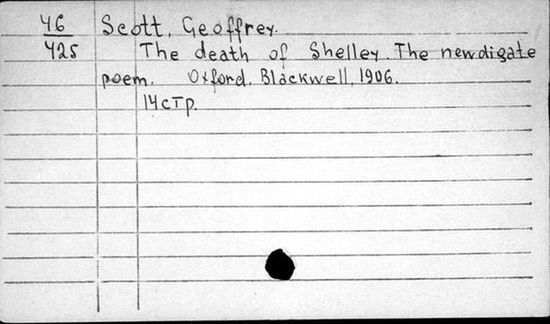 46 Scott, Geoffrey.
425 The death of Shelley. The newdigate
poem. Oxford, Blackwell, 1906.
14стр.